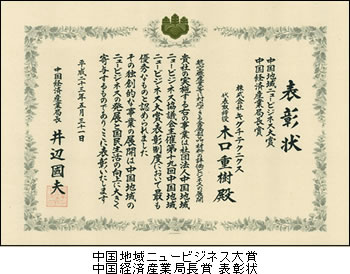 表彰状
中国地域ニュービジネス大賞
中国経済産業局長賞
株式会社キグチテクニクス
代表取締役 木口重樹 殿
貴社の実施する右の事業は社団法人中国地域
ニュービジネス協議会主催第十九回中国地域
ニュービジネス大賞表彰制度において最も
優秀なものと認められました
その独創的な事業の展開は中国地域の
ニュービジネスの発展と国民生活の向上に大きく
寄与するものでありここに表彰いたします
平成二十三年五月三十一日
中国経済産業局長 井辺國夫
中国地域ニュービジネス大賞
中国経済産業局長賞 表彰状